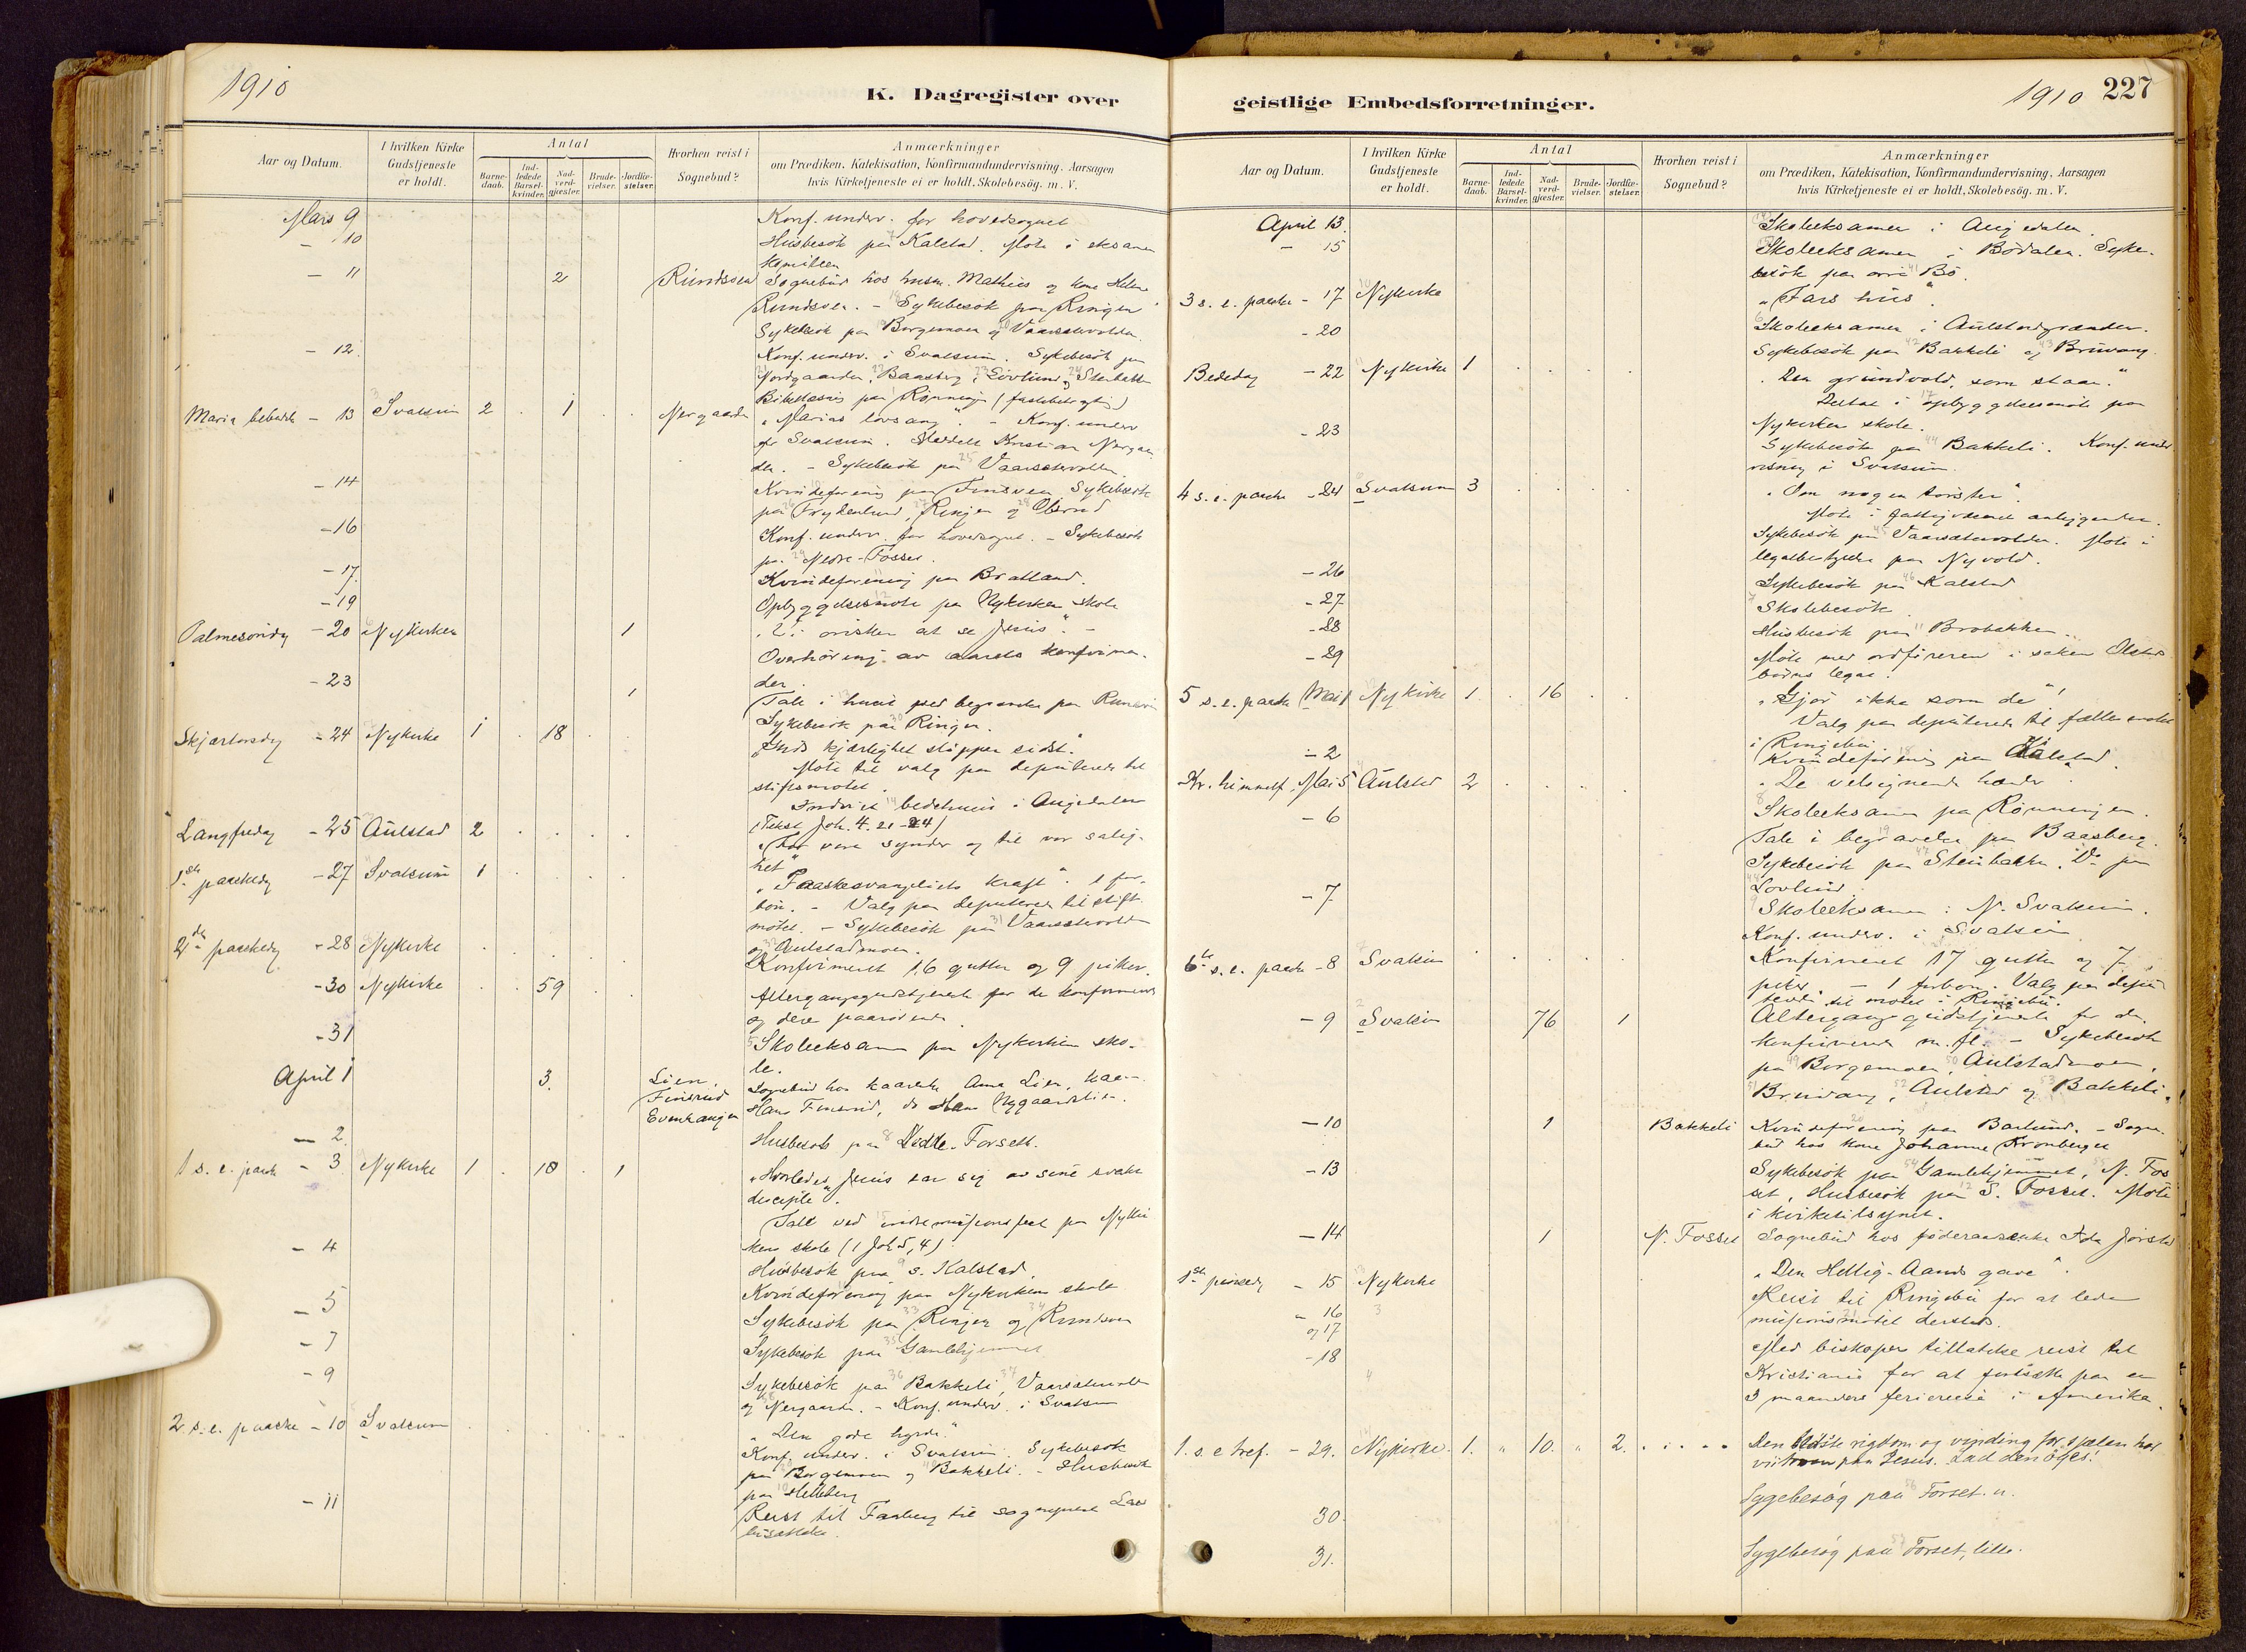 1910
K. Dagregister over
Aar og Datum.
I hvilken Kirke Gudstjeneste er holdt.
Antal
Barne-daab.
Ind-ledede Barsel-kvinder.
Nad-verd-gjester.
Brude-vielser.
Jordfæ-stelser.
Hvorhen reist i Sognebud?
Anmærkninger
om Prædiken, Katekisation, Konfirmandundervisning, Aarsagen
hvis Kirketjeneste ei er holdt, Skolebesög. m. V.
Mars 9 Konf. underv. for hovedsognet
- 10 Husbesök paa Kalstad. Möte i eksamen
komiteen
- 11 2 Rundsveen Sognebud hos husm. Mathias og kone Helene
Rundsveen. - Sykebesök paa Ringen
Sykebesök paa Borgemoen og Vaarsetervolden
- 12. Konf. underv. i Svatsum. Sykebesök paa
Nordgaarden, Baasberg, Lövlund, Stenbakken
Bibellæsning paa Rönningen
Maria bebud. - 13 Svatsum 2 . 1 . . Nergaarden
"Marias lovsang". - Konf. underv
for Svatsum. Kristian Nergaar
den. - Sykebesök paa Vaarsetervolden
- 14 Kvindeforening paa Finsveen, Sykebesök
paa Frydenlund, Ringen og Olsrud
- 16 Konf. underv. for hovedsognet. - Sykebesök
paa Nedre-Fosset.
- 17. Kvindeforening paa Bratland.
- 19 Opbyggelsesmöte paa Nykirken skole
Palmesöndag - 20 Nykirken 1 "Vi önsker at se Jesus". -
Overhöring av aarets konfirman-
der.
- 23 1 Tale i huset ved begravelse paa
Sykebesök paa Ringen.
Skjærtorsdag - 24 Nykirke 1 . 18 . . "Guds kjærlighet slipper sidst."
Möte til valg paa deputerede til
stiftsmötet.
Indviet bedehus i Augedalen
(Tekst Joh. 4. 21-24)
Langfredag - 25 Aulstad 2 . . . . "For vore synder og til vor salig-
het"
1ste paaskedag - 27 Svatsum 1 . . . . "Paaskeevangeliets kraft". 1 for-
bön. - Valg paa deputerede til stift-
mötet. - Sykebesök paa Vaarsetervolden
og Aulstadmoen.
2den paaskedag - 28 Nykirke . . . . . Konfirmeret 16 gutter og 9 piker.
- 30 Nykirke . . 59 . . Altergangsgudstjeneste for de konfirmerede
og deres paarörende
- 31 Skoleeksamen paa Nykirken sko-
le.
April 1 3. Lien, Finsrud Evenhaugen Sognebud hos kaarenke Anna Lien, kaarm.
Hans Finsrud, do Hans Nygaardslien.
- 2. Husbesök paa Vedle-Forset.
1 s. e. paaske - 3 Nykirke 1 . 18 . 1 "Hvorledes Jesus tar sig av sine svake
disciple".
Talt ved indremissionsfest paa Nykir
kens skole (1 Joh 5,4).
- 4 Husbesök paa s. Kalstad.
Kvindeforening paa Nykirken skole
- 5 Sykebesök paa Ringen og Rundsveen
- 7 Sykebesök paa Gamlehjemmet
- 9 Sykebesök paa Bakkeli, Vaarsetervolden
og Nergaarden. - Konf. underv. i Svatsum
2. s. e. paaske - 10 Svatsum . . . . . "Den gode hyrde."
Konf. underv. i Svatsum. Sykebesök
paa Borgemoen og Bakkeli. - Husbesök
paa Helleberg
- 11 Reist til Faaberg til sogneprest
bisættelse.
1910 227
geistlige Embedsforretninger.
Aar og Datum.
I hvilken Kirke Gudstjeneste er holdt.
Antal
Barne-daab.
Ind-ledede Barsel-kvinder.
Nad-verd-gjæster.
Brude-vielser.
Jordfæ-stelser.
Hvorhen reist i Sognebud?
Anmærkninger
om Prædiken, Katekisation, Konfirmandundervisning, Aarsagen
hvis Kirketjeneste ei er holdt, Skolebesög. m. V.
April 13. Skoleeksamen i Augedalen.
- 15 Skoleeksamen i Bödalen. Syke-
besök paa Bö.
3 s. e. paaske - 17 Nykirke "Fars hus".
- 20 Skoleeksamen i Aulstadgrenden.
Sykebesök paa Bakkeli og Bruvang
Bededag - 22 Nykirke 1 . . . . "Den grundvold, som staar."
Deltat i opbyggelsesmöte paa
Nykirken skole.
- 23 Sykebesök paa Bakkeli. Konf. under
visning i Svatsum.
4 s. e. paaske - 24 Svatsum 3 . . . . "Om nogen törster".
Möte i fattigvæsenet anliggender.
Sykebesök paa Vaarsætervolden. Möte i
legatbestyrelse paa Nyvold.
- 26 Sykebesök paa Kalstad
- 27 Skolebesök
- 28 Husbesök paa Brobakken.
- 29 Möte med ordföreren i saken
legat.
5 s. e. paaske Mai 1 Nykirke 1 . 16 . . "Gjör ikke som de"!
Valg paa deputerede til fællesmötet
i Ringebu
- 2 Kvindeforening paa Kalstad.
Kr. himmelf. Mai 5 Aulstad 2 . . . . "De velsignende hænder"
- 6 Skoleeksamen paa Rönningen.
Tale i begravelse paa Baasberg.
Sykebesök paa Stenbakken. Do paa
Lövlund.
- 7 Skoleeksamen i N. Svatsum.
Konf. underv. i Svatsum
6te s. e. paaske - 8 Svatsum . . . . . Konfirmeret 17 gutter og 7
piker. - 1 forbön. Valg paa depu
terte til mötet i Ringebu.
- 9 Svatsum 76 1 Altergangsgudstjeneste for de
konfirmerede m. fl. - Sykebesök
paa Borgemoen, Aulstadmoen,
Bruvang, Aulstad og Bakkeli.
- 10 1 Bakkeli Kvindeforening paa Barlund. - Sogne-
bud hos kone Johanne Kronberget
- 13 Sykebesök paa Gamlehjemmet, N. Fos
set, Husbesök paa S. Fosset. Möte
i kirketilsynet.
- 14 1 N. Fosset Sognebud hos föderaadsenke Ada Jörstad
1ste pinsedag - 15 Nykirke "Den Hellig-Aands gave".
- 16 og 17 Reist til Ringebu for at lede
missionsmötet dersteds.
- 18 Med biskopens tilladelse reist til
Kristiania for at fortsætte paa en
3 maaneders feriereise i Amerika.
1. s. e. tref. - 29. Nykirke. 1. " 10. " 2. . . . . Den bedste rigdom og vinding for sjælen har
vi i troen paa Jesus. Lad den öges!
Sygebesög paa Forset. n.
30.
31. Sygebesög paa Forset, lille.